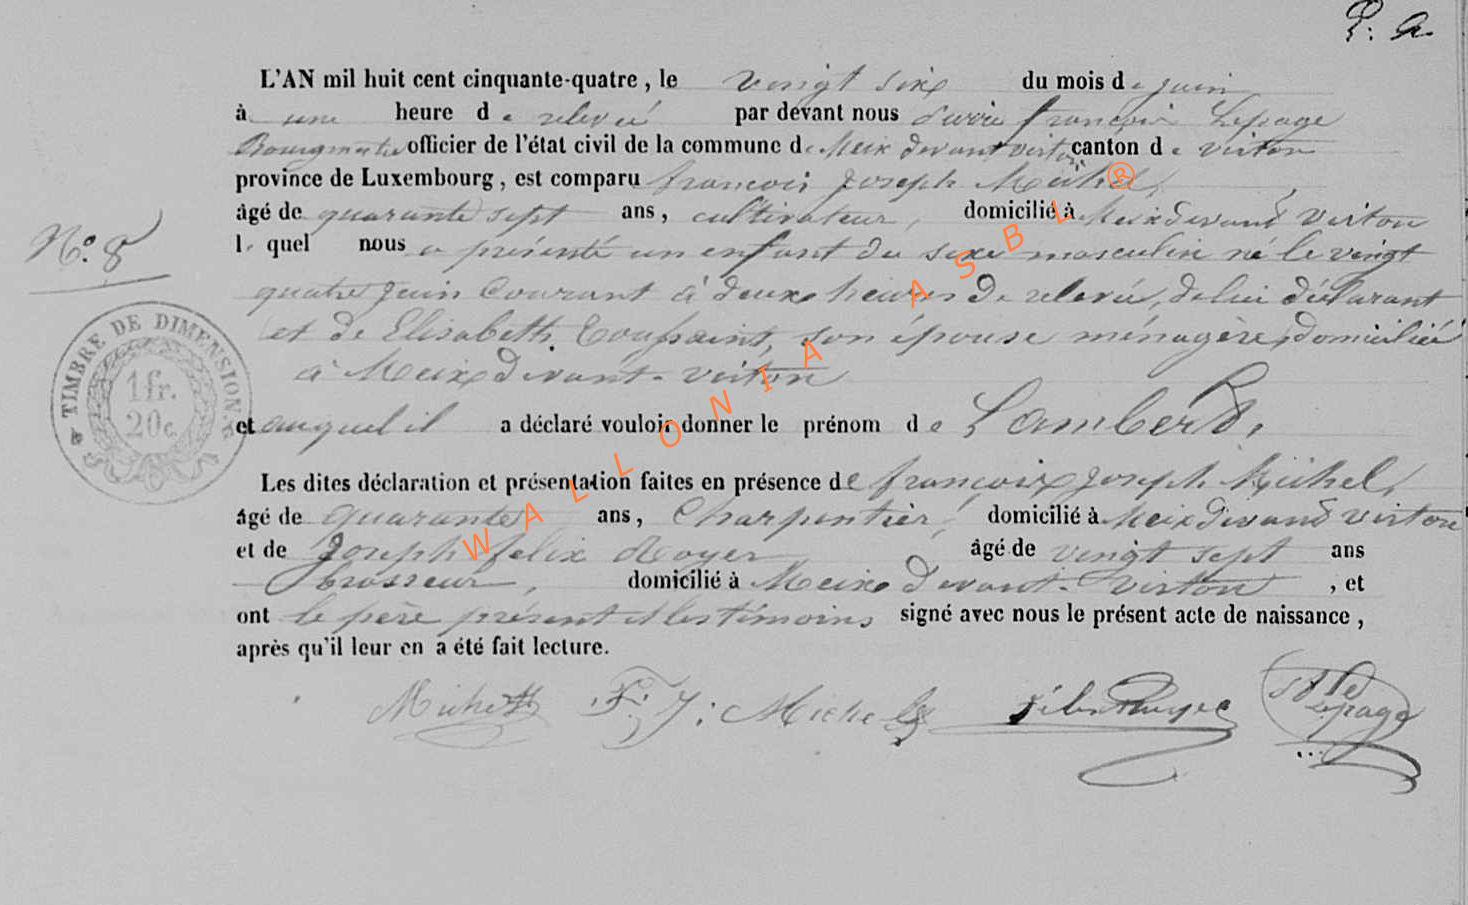 L'AN mil huit cent cinquante-quatre, le vingt six du mois de juin
à une heure de relevée par devant nous françois Lepage
Bourgmestre officier de l'état civil de la commune de Meix devant virton canton de virton
province de Luxembourg, est comparu françois Joseph Michel,
âgé de quarante sept ans, cultivateur, domicilié à Meix devant Virton
N.o 8
le quel nous a présenté un enfant du sexe masculin né le vingt
quatre Juin Courant à deux heures de relevée, de lui déclarant
et de Elisabeth Toussaint, son épouse ménagère, domiciliée
à Meix devant-virton
TIMBRE DE DIMENSION
1 fr.
20 c.
et auquel il a déclaré vouloir donner le prénom de Lambert,
Les dites déclaration et présentation faites en présence de françois Joseph Michel,
âgé de quarante ans, Charpentier, domicilié à Meix devant virton
et de Joseph felix Royer âgé de vingt sept ans
brasseur, domicilié à Meix devant-Virton, et
ont le père présent et les témoins signé avec nous le présent acte de naissance,
après qu'il leur en a été fait lecture.
Michel F. J. Michel Lepage
WALLONIA ASBL ®